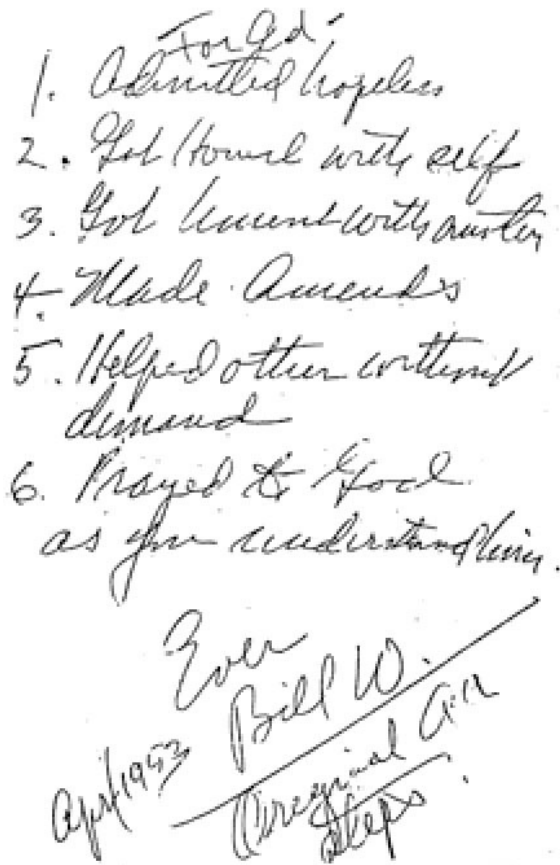 For Ed -
1. Admitted hopeless
2. Got honest with self
3. Got honest with another
4. Made Amends
5. Helped other without
demand
6. Prayed to God
as you understand Him.
Ever
Bill W.
Apr/1953
Original AA
Steps.